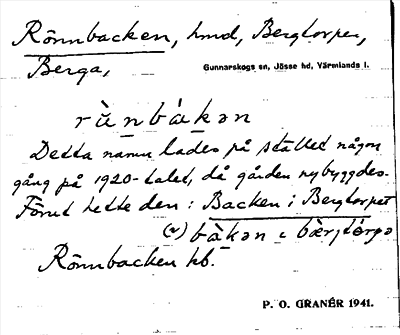 Rönnbacken, hmd, Bergtorpet,
Berga,
Gunnarskogs sn, Jösse hd, Värmlands l.
rὺnbákən
Detta namn lades på stället någon
gång på 1920-talet, då gården nybyggdes.
Förut hette den: Backen i Bergtorpet
(~) bàkən ɩ bærjtórpə
Rönnbacken kb.
P. O. GRANÉR 1941.